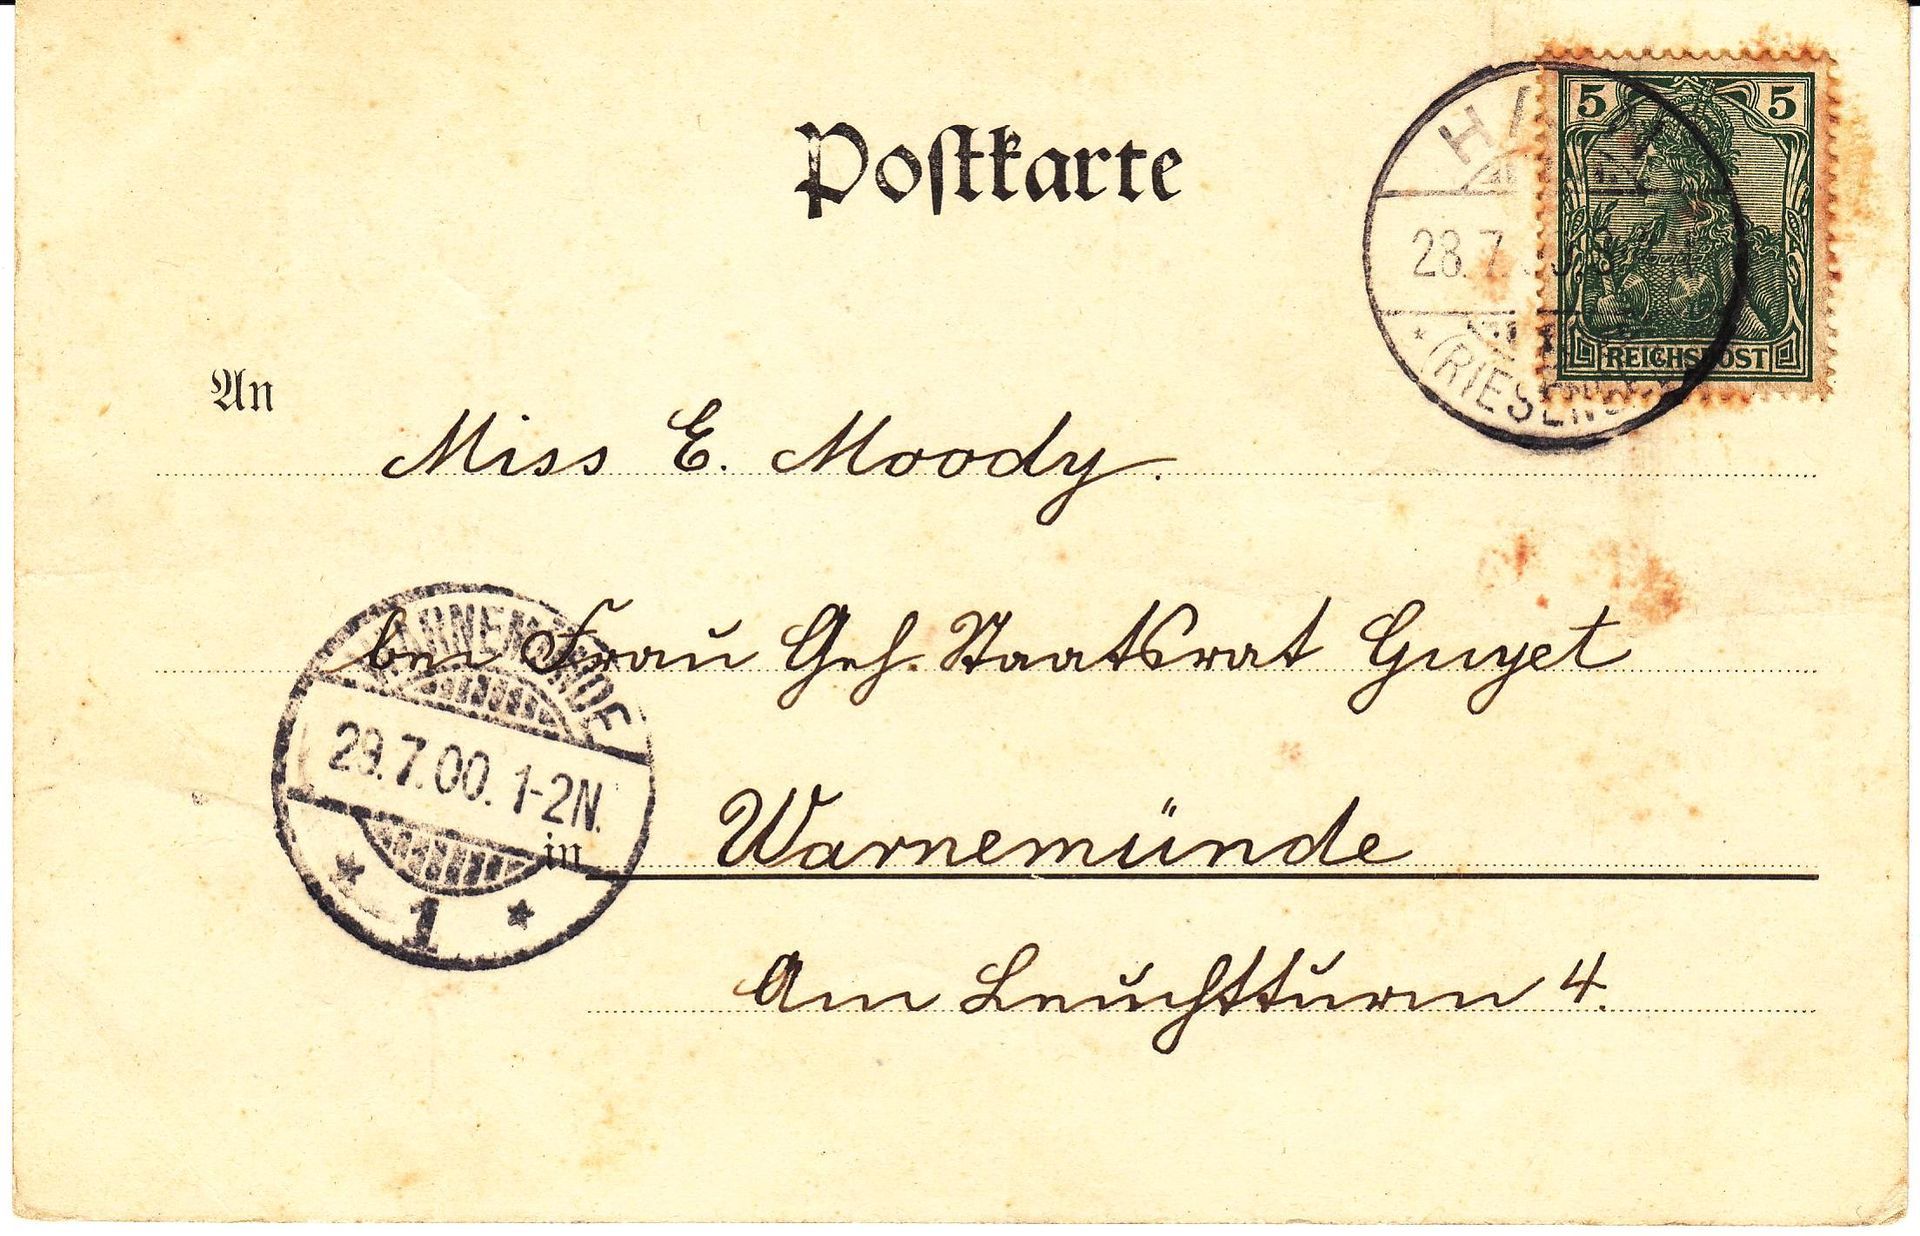 Postkarte
5 5
28.7.
(RIESENG
REICHSPOST
An
Miss E. Moody.
bei Frau Geh. Staatsrat Guyet
WARNEMÜNDE
29.7.00. 1-2N.
1
in Warnemünde
Am Leuchtturm 4.